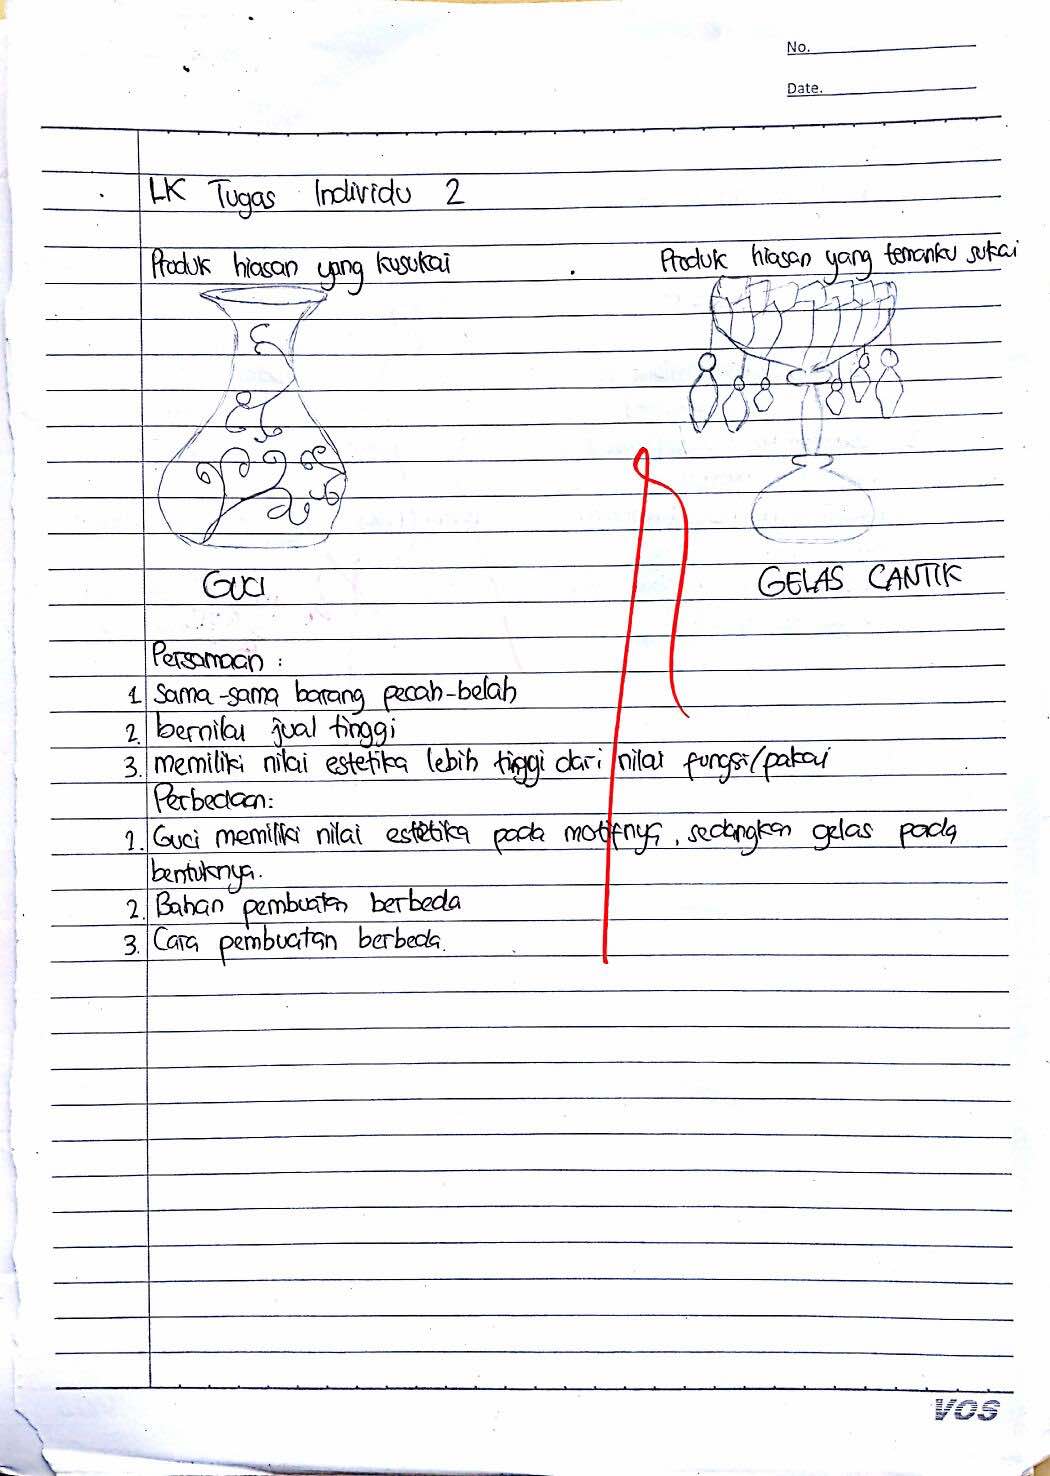 No.
Date.
LK Tugas Individu 2
Produk hiasan yang kusukai
Produk hiasan yang temanku sukai
GUCI
GELAS CANTIK
Persamaan :
1. Sama-sama barang pecah-belah
2. bernilai jual tinggi
3. memiliki nilai estetika lebih tinggi dari nilai fungsi/pakai
Perbedaan:
1. Guci memiliki nilai estetika pada motifnya, sedangkan gelas pada
bentuknya.
2. Bahan pembuatan berbeda
3. Cara pembuatan berbeda.
VOS